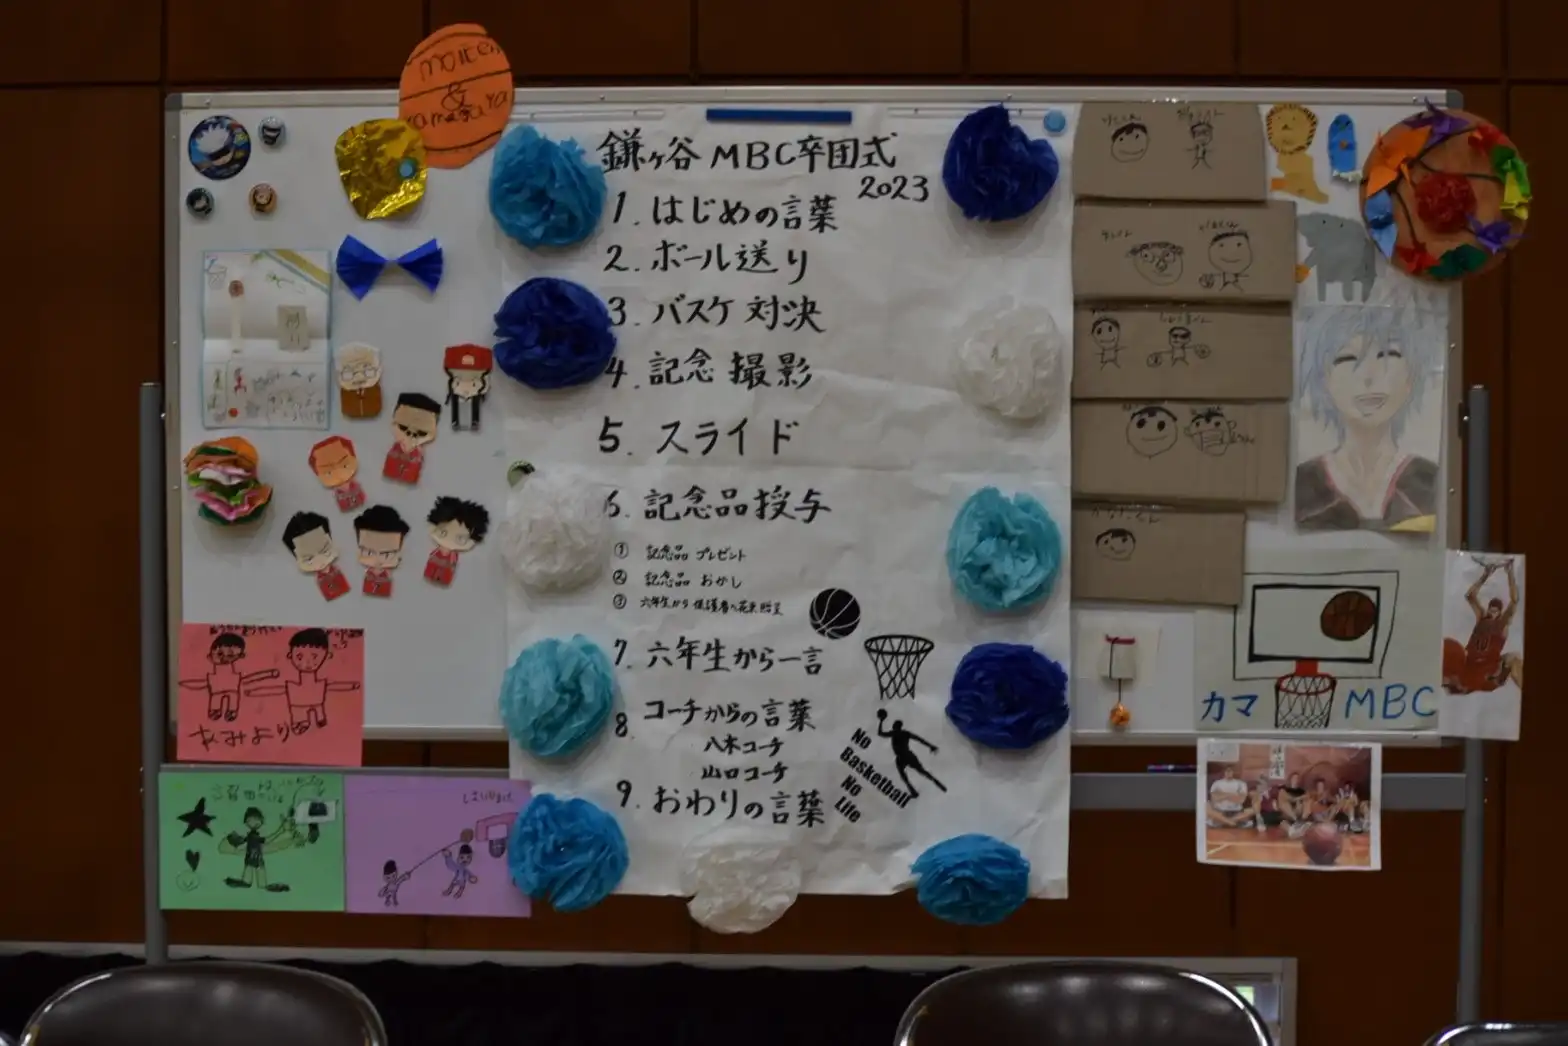 molten
&
鎌ヶ谷 MBC卒団式
2023
1. はじめの言葉
2. ボール送り
3. バスケ対決
4. 記念撮影
5. スライド
6. 記念品授与
① 記念品 プレゼント
② 記念品 おかし
③ 六年生から保護者へ花束贈呈
7. 六年生から一言
8 コーチからの言葉
八木コーチ
山口コーチ
9. おわりの言葉
No
Basketball
No
Life
カマ MBC